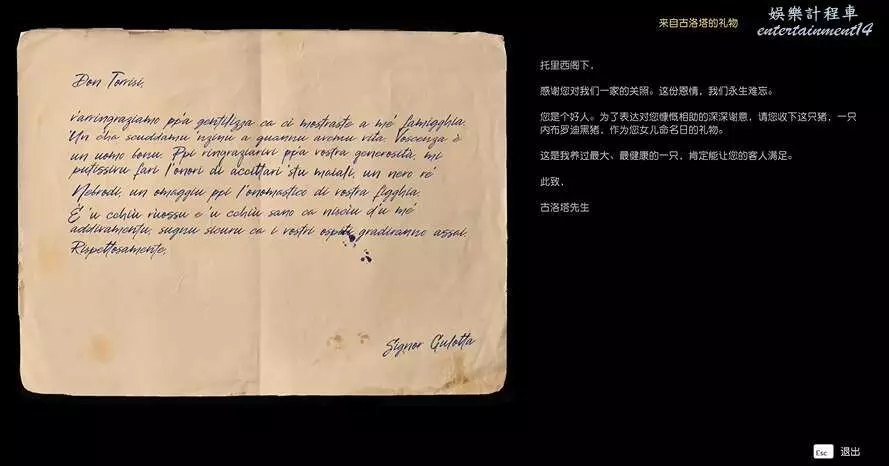 娛樂計程車
entertainment14
来自古洛塔的礼物
Don Torrisi,
v'arringraziamo pp'a gentilizza ca ci mostraste a mé famigghia.
'Un cha scuddamu 'nzinu a quannu avemu vita. Voscenza è
un uomo bonu. Ppi ringraziarivi pp'a vostra generosità, mi
putissivu fari l'onori di accittari 'stu maiali, un nero ré
Nebrodi, un omaggiu ppi l'onomastico di vostra figghia.
È 'u cchiù ruossu e 'u cchiù sano ca nisciu d'u mé
addivamentu, sugnu sicuru ca i vostri ospiti gradiranno assai.
Rispettosamente,
Signor Gulotta
托里西阁下，
感谢您对我们一家的关照。这份恩情，我们永生难忘。
您是个好人。为了表达对您慷慨相助的深深谢意，请您收下这只猪，一只
内布罗迪黑猪，作为您女儿命名日的礼物。
这是我养过最大、最健康的一只，肯定能让您的客人满足。
此致，
古洛塔先生
Esc 退出